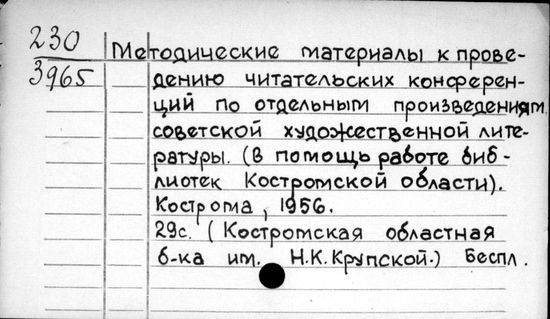 230
3965
Методические материалы к прове-
дению читательских конферен-
ций по отдельным произведениям
советской художественной лите-
ратуры. (В помощь работе биб-
лиотек Костромской области).
Кострома, 1956.
29с. (Костромская областная
б-ка им. Н.К.Крупской.) Беспл.